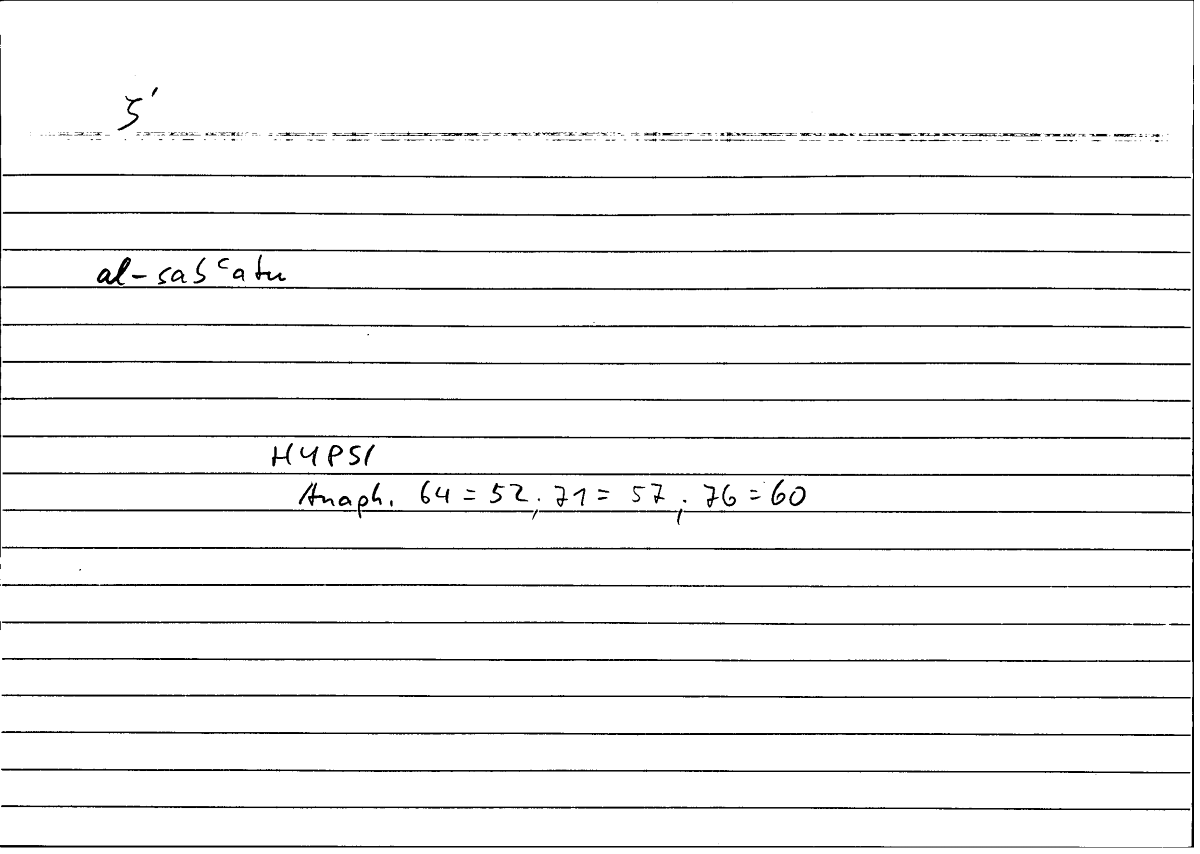 ζ'
al-sabᶜatu
HYPSI
Anaph. 64 = 52; 71 = 57; 76 = 60